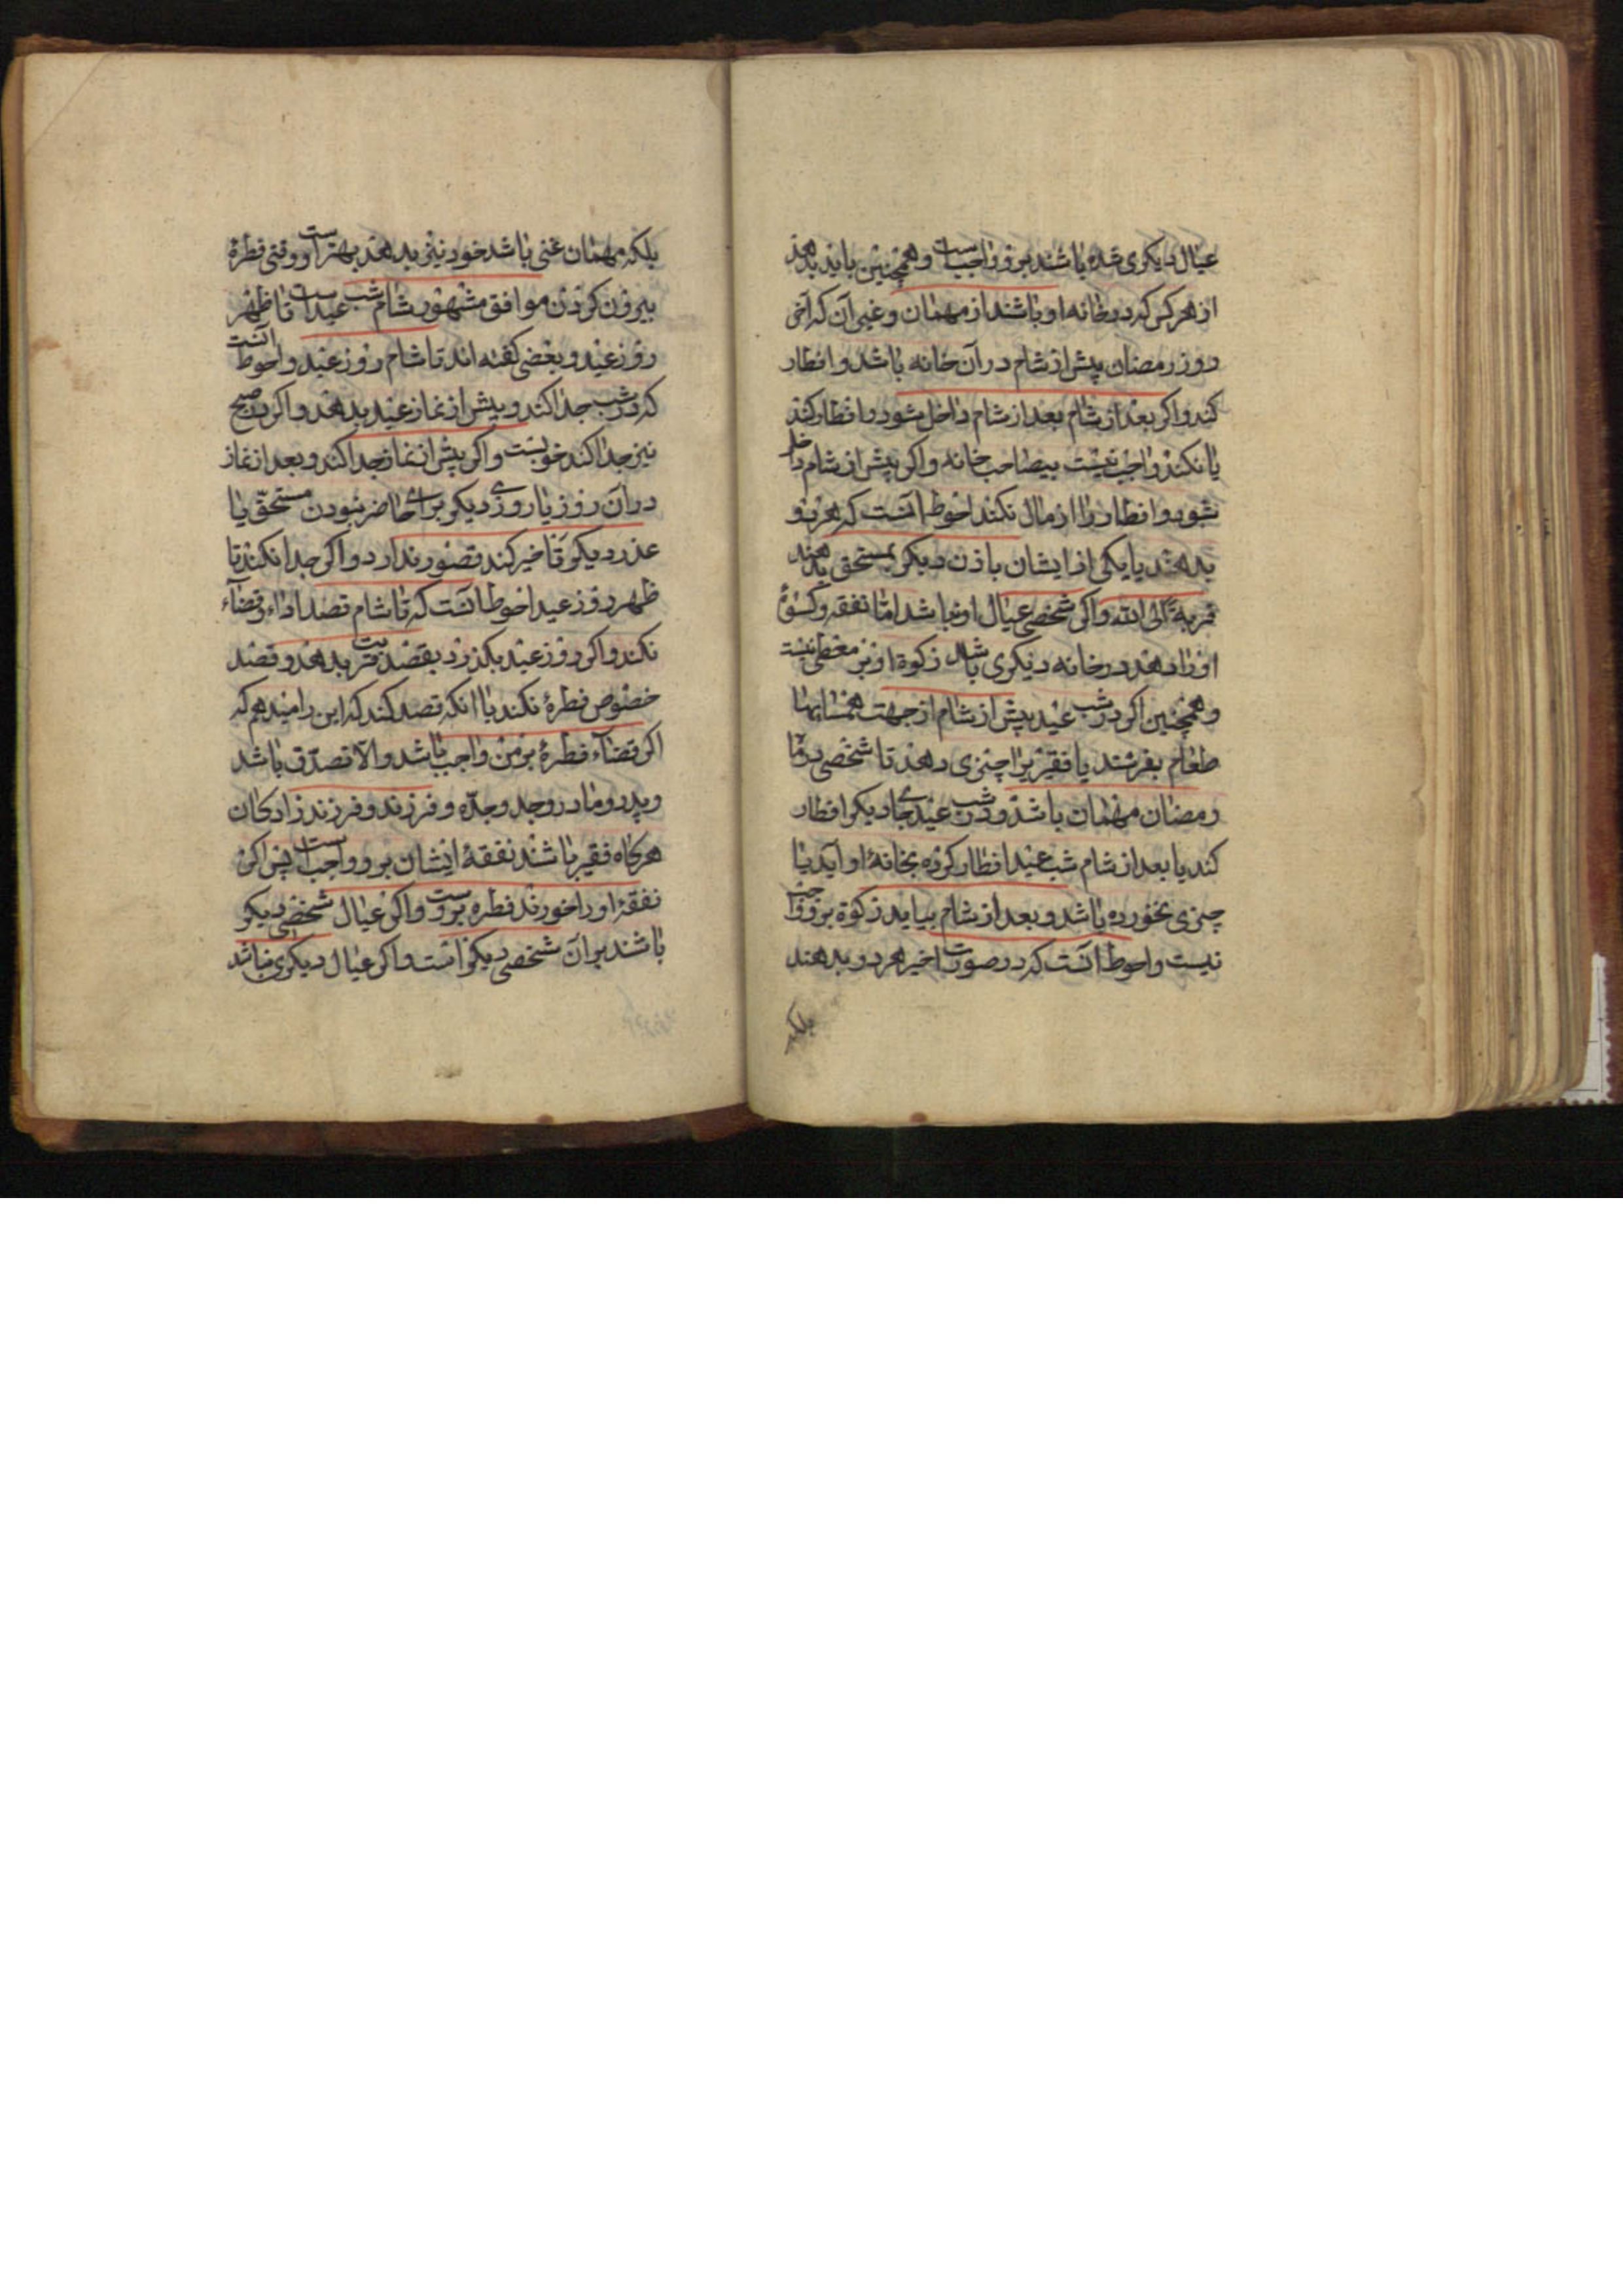 عیال دیکری شده باشند برو واجبست و همچنین باید بدهد
از هر کس که در خانه او باشند از مهمان و غیر آن که آخر
روز رمضان پیش از شام در آن خانه باشد و افطار
کند و اکر بعد از شام بعد از شام داخل شود و افطار کند
یا نکند واجب نیست بر صاحب خانه و اکر پیش از شام داخل
شود و افطار را از مال نکند احوط آنست که هر دو
بدهند یا یکی از ایشان باذن دیکری بمستحق بدهند
قربة الی الله و اکر شخصی عیال او نباشد اما نفقه و کسوۀ
او را دهد در خانه دیکری باشد زکوة او بر معطی نیست
و همچنین اکر در شب عید پیش از شام از جهت همسایها
طعام بفرستد یا فقیر را چیزی دهد تا شخصی در ماه
رمضان مهمان باشد و در شب عید جای دیکر افطار
کند یا بعد از شام شب عید افطار کرده بخانۀ او آید یا
چیزی نخورده باشد و بعد از شام بیاید زکوة برو واجب
نیست و احوط آنست که در صورت اخیر هر دو بدهند
بلکه
بلکه مهمان غنی باشد خود نیز بدهد بهتر است و وقتی فطرۀ
بیرون کردن موافق مشهور شام شب عید است تا ظهر
روز عید و بعضی کفته اند تا شام روز عید و احوط آنست
که در شب جدا کند و پیش از نماز عید بدهد و اکر در صبح
نیز جدا کند خوبست و اکر پیش از نماز جدا کند و بعد از نماز
در آن روز یا روزی دیکر برای حاضر نبودن مستحقّ یا
عذر دیکر تاخیر کند قصور ندارد و اکر جدا نکند تا
ظهر روز عید احوط آنست که تا شام قصد اداء و قضاء
نکند و اکر روز عید بکذرد بقصد قربت بدهد و قصد
خصوص فطرۀ نکند یا آنکه قصد کند که این را میدهم که
اکر قضاء فطرۀ بر من واجب باشد و الّا تصدّق باشد
و پدر و مادر و جد و جدّه و فرزند و فرزند زادکان
هر کاه فقیر باشند نفقۀ ایشان برو واجبست پس اکر
نفقۀ او را خورند فطره بروست و اکر عیال شخصی دیکر
باشند بر آن شخصی دیکر است و اکر عیال دیکری نباشد